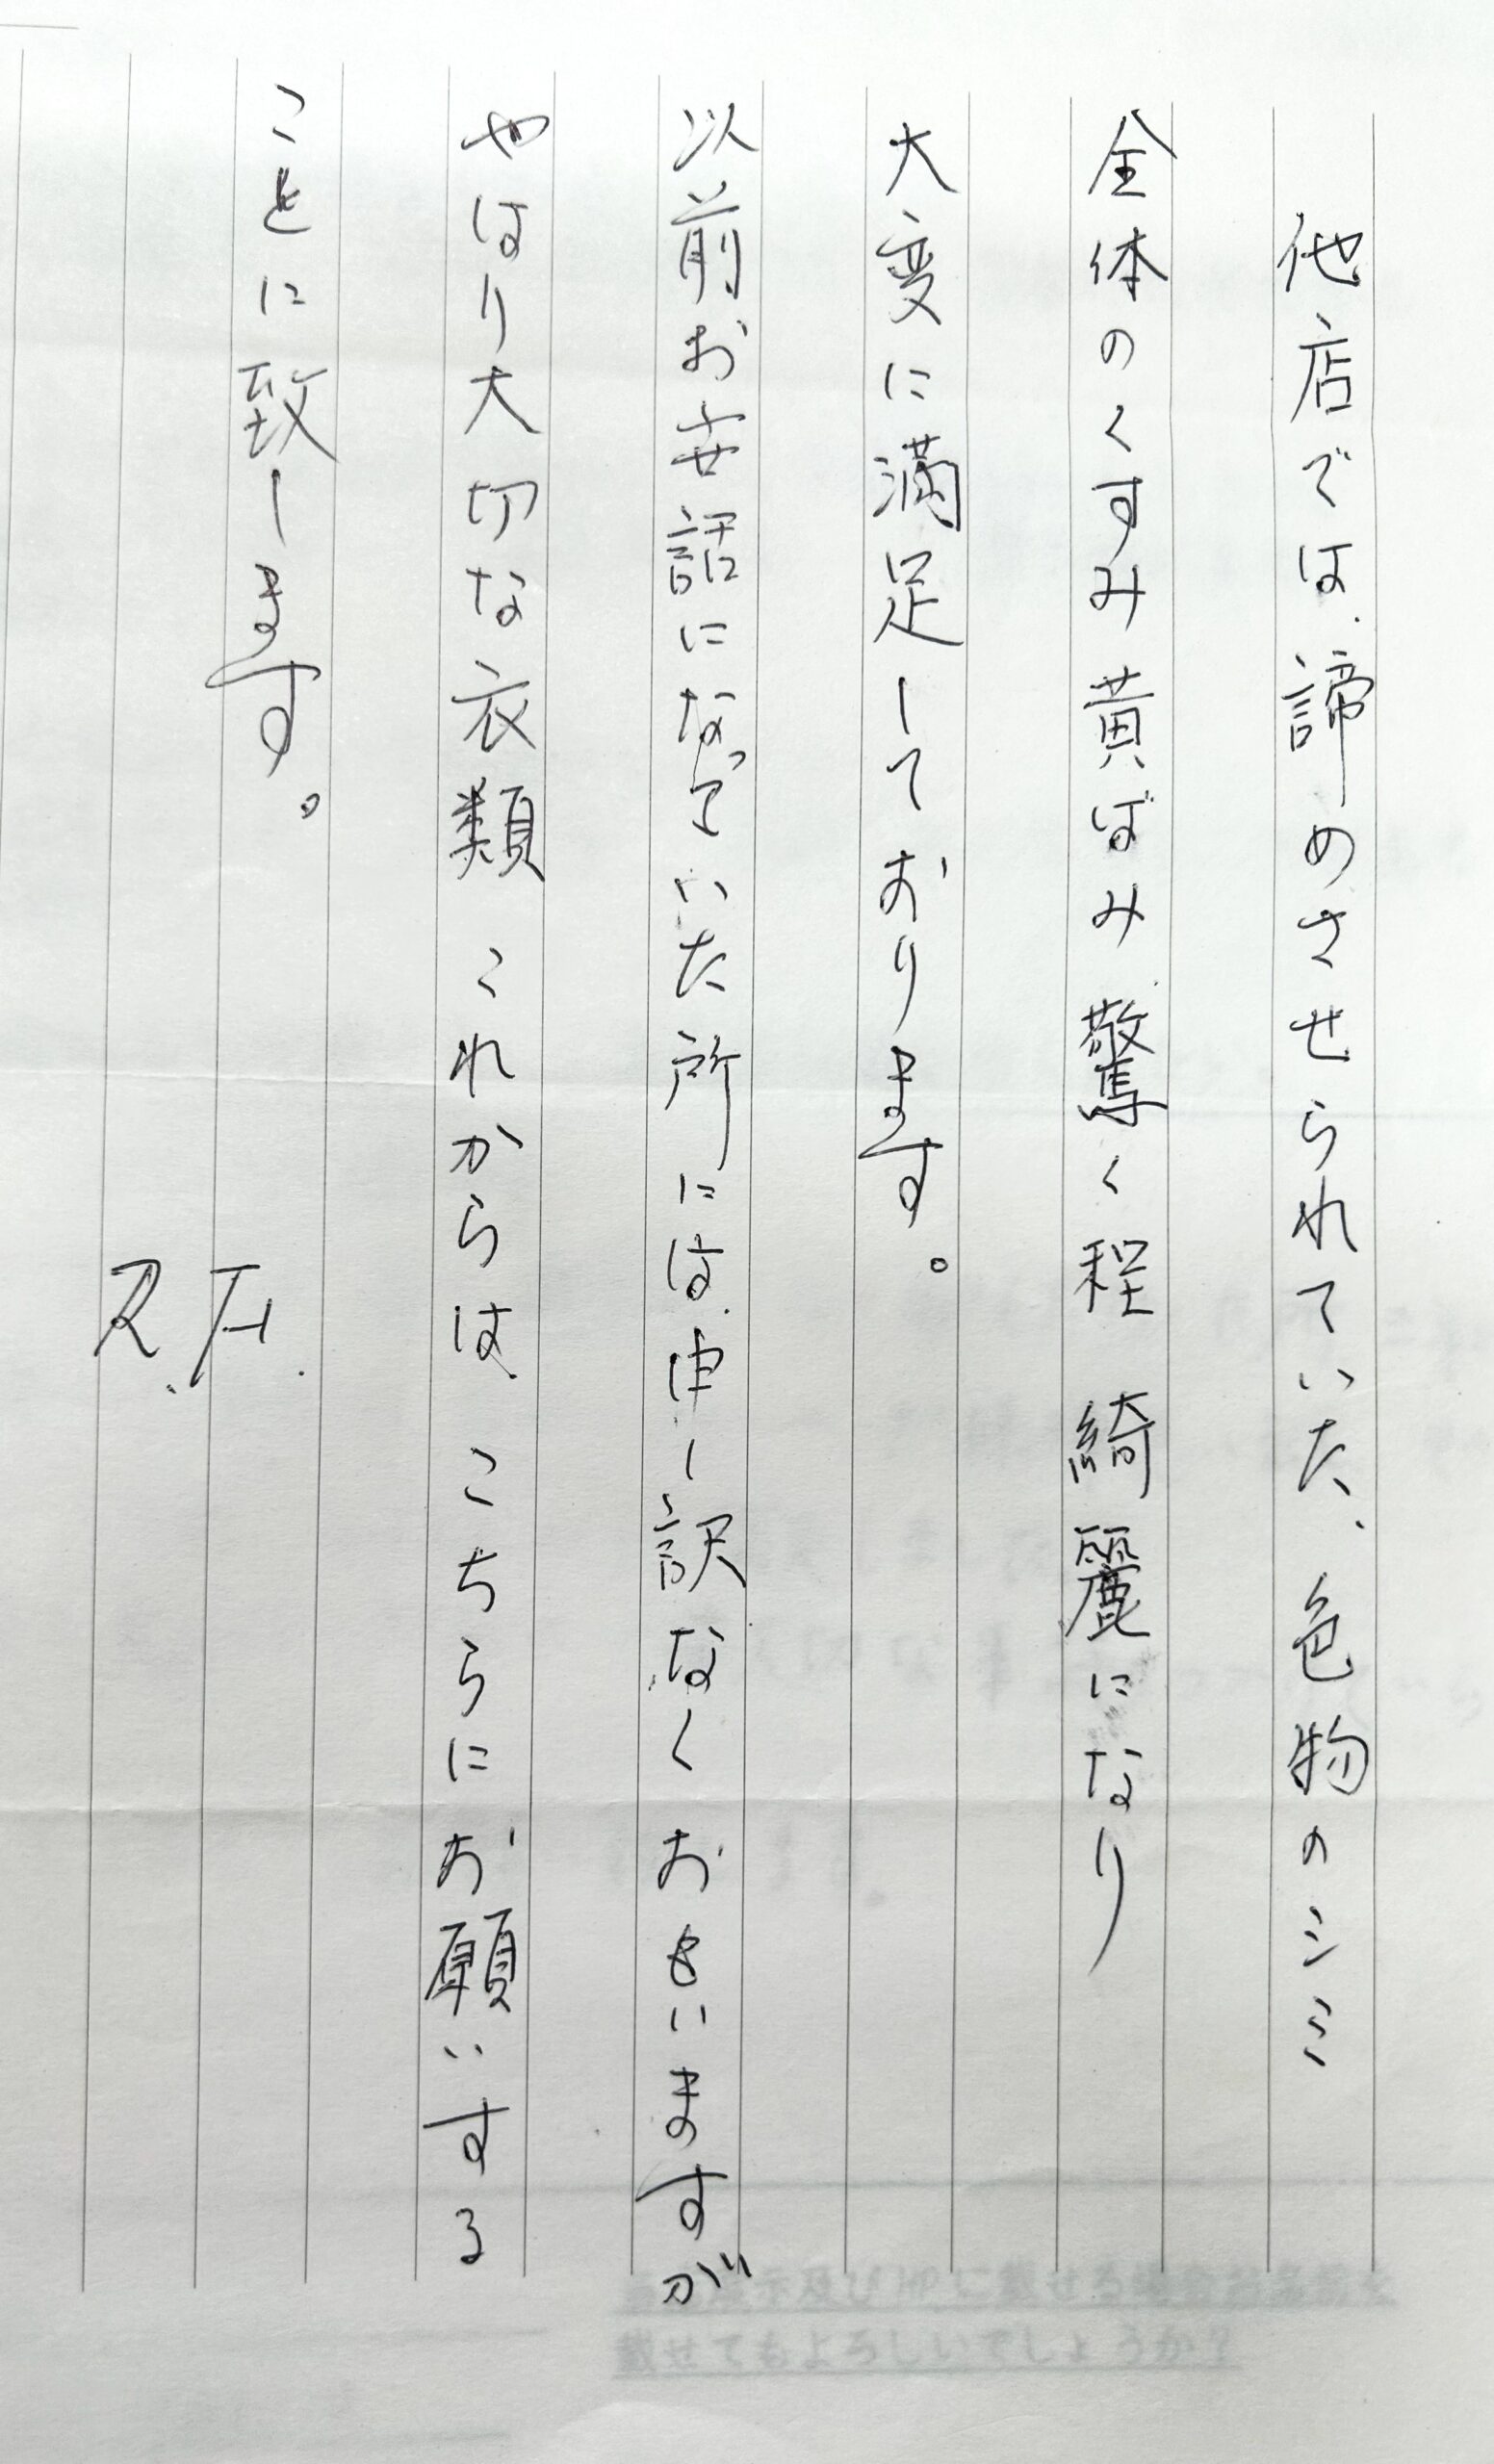 他店では、諦めさせられていた、色物のシミ
全体のくすみ黄ばみ驚く程 綺麗になり
大変に満足しております。
以前お世話になっていた所には申し訳なくおもいますが
やはり大切な衣類 これからは こちらにお願いする
ことに致します。
載せてもよろしいでしょうか?